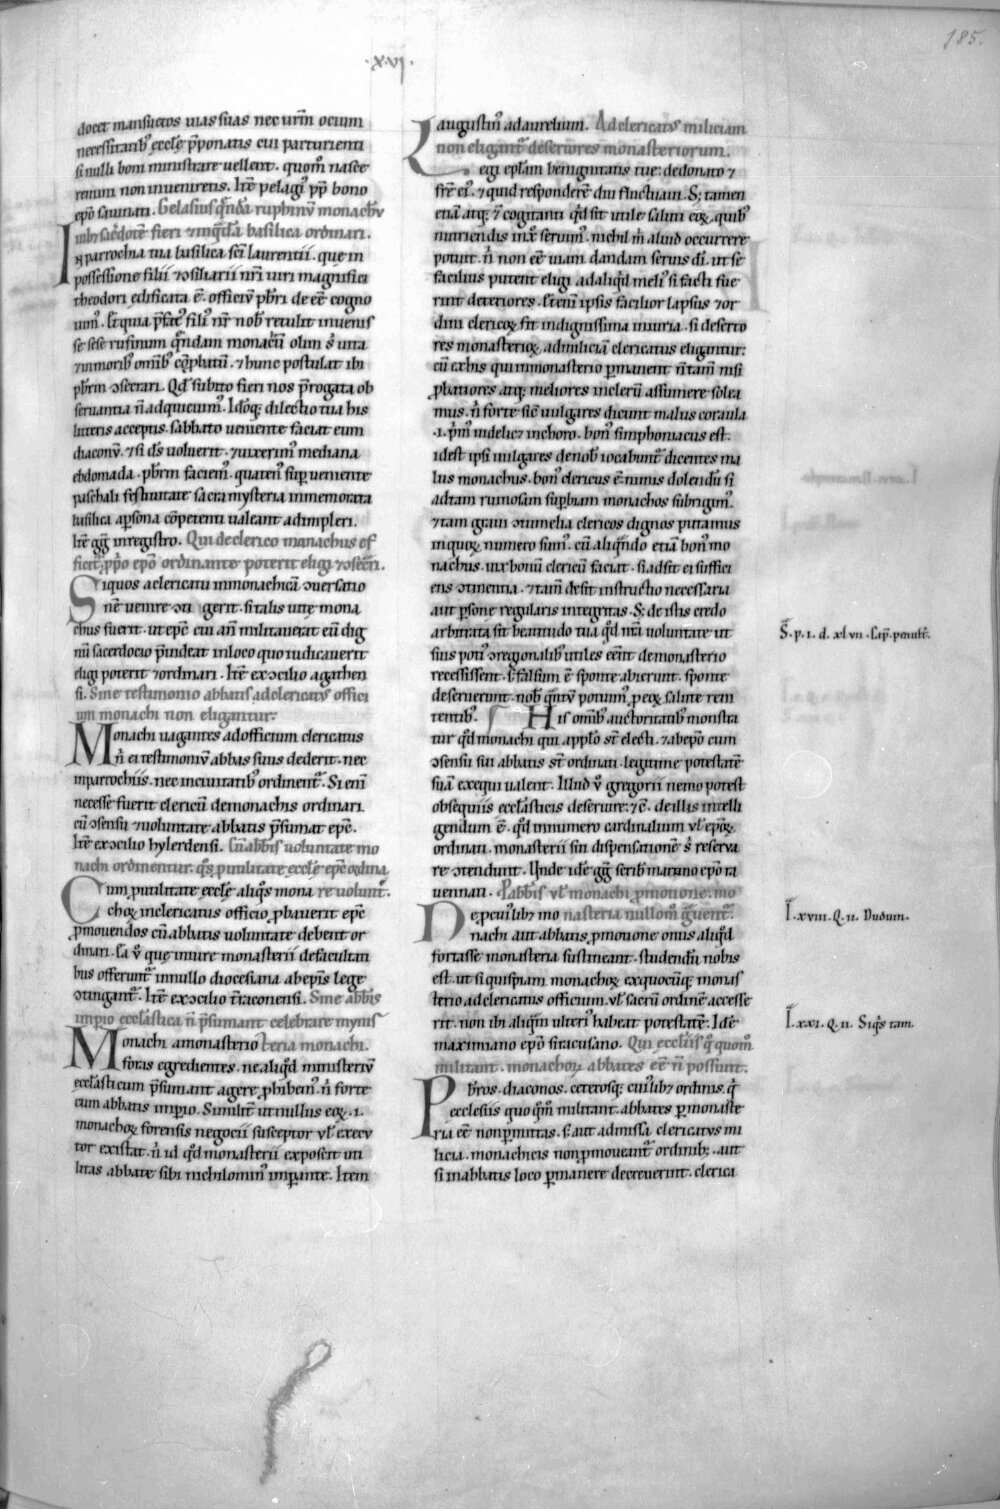 185.
·xvi·
docet mansuetos uias suas nec urm̄ ocium
necessitatibꝰ eccłę p̄ponatis cui parturienti
si nulli boni ministrare uellent. quom̄ nasce
retur non inuenireris. Itē pelagiꝰ pp̄ bono
ep̄o Gelasius q̄ndā ruphinū monachū
iubꝫ sac̄dotē fieri basilica ordinari.
In parrochia tua basilica sc̄i laurentii. que in
possessione filii ⁊ ɔsiliarii nr̄i uiri magnifici
theodori edificata ē. officiū pbr̄i de eē cogno
uimꝰ. Et quia p̄fatꝰ filiꝰ nr̄ nob̄ retulit inuenis
se sese rufinum q̄ndam monachū olim s; uita
⁊ moribꝰ omībꝰ cōprobatū. ⁊ hunc postulat ibi
pbr̄m ɔsecrari. Qd̄ subito fieri nos p̄rogata ob
seruantia n̄ adquieuimꝰ. Idoq; dilectio tua his
litteris acceptis. sabbato ueniente faciat eum
diaconū. ⁊ si dˢ uoluerit. ⁊ uixerimꝰ mediana
ebdomada. pbr̄m faciemꝰ. quatenꝰ sup̱ueniente
paschali festiuitate sacra mysteria in memorata
basilica a p̱sona cōpetenti ualeant adimpleri.
Itē gḡ in registro. Qui de clerico monachus ef
ficit᷑. p̱p̱o ep̄o ordinante poterit eligi ⁊ ɔsec̄ri.
Siquos a clericatu in monachicā ɔuersatio
nē uenire ɔti gerit. si talis uitę mona
chus fuerit. ut ep̄c cui an̄ militauerat eū dig
nū sacerdocio p̄uideat in loco quo iudicauerit
eligi poterit ⁊ ordinari. Itē ex ɔcilio agathen
si. Sine testimonio abbatis ad clericatꝰ offici
um monachi non eligantur:
Monachi uagantes ad officium clericatus
n̄ ei testimoniū abbas suus dederit. nec
in parrochiis. nec in ciuitatibꝰ ordinent᷑. Si enī
necesse fuerit clericū de monachis ordinari.
cū ɔsensu ⁊ uoluntate abbatis p̄sumat ep̄c.
Itē ex ɔcilio hylerdensi. Cū abbīs uoluntate mo
nachi ordinentur. q̄s p̱ utilitate eccłę ep̄c ordina
Cum p̱ utilitate eccłę aliq̄s mona re uolunt᷑.
choꝝ in clericatus officio p̱bauerit ep̄c
p̱mouendos cū abbatis uoluntate debent or
dinari. Ea v̊ que in iure monasterii de facultati
bus offerunt᷑ in nullo diocesana ab ep̄is lege
ɔtingant᷑. Itē ex ɔcilio tr̄raconensi. Sine abbīs
imp̱io eccłastica n̄ p̄sumant celebrare mynis
Monachi a monasterio teria monachi.
foras egredientes. ne aliq̄d ministeriū
eccłasticum p̄sumant agere p̱hibemꝰ. n̄ forte
cum abbatis imp̱io. Similit᷑ ut nullus eoꝝ .i.
monachoꝝ forensis negocii susceptor vł execu
tor existat. n̄ id qd̄ monasterii exposcit uti
litas abbate sibi nichilominꝰ imp̱ante. Item
augustinꝰ ad aurelium. Ad clericatꝰ miliciam
non eligant᷑ desertores monasteriorum.
Legi epłam benignitatis tue: de donato ⁊
fr̄e eiꝰ. ⁊ quid responderē diu fluctuaui. S; tamen
etiā atq; ⁊ cogitanti qd̄ sit utile saluti eoꝝ. quibꝰ
nutriendis in xp̄o seruimꝰ. nichil m̄ aliud occurrere
potuit. n̄ non eē uiam dandam seruis dī. ut se
facilius putent eligi ad aliqd̄ meliꝰ si facti fue
rint deteriores. Et enī ipsis facilior lapsus ⁊ or
dini clericoꝝ fit indignissima iniuria. si deserto
res monasterioꝝ ad miliciā clericatus eligantur:
cū ex his qui in monasterio p̱manent n̄ tam̄ nisi
p̱batiores atq; meliores in clerū assumere solea
mus. n̄ forte sic̄ uulgares dicunt malus coraula
bonꝰ simphoniacus est.
idest ipsi uulgares de nob̄ iocabunt᷑ dicentes ma
lus monachus. bonꝰ clericus ē. nimis dolendū si
ad tam ruinosam sup̱biam monachos subrigimꝰ.
⁊ tam graui ɔtumelia clericos dignos putamus
in quoꝝ numero sumꝰ. cū aliq̄ndo etiā bonꝰ mo
nachus. uix bonū clericū faciat. si adsit ei suffici
ens ɔtinentia. ⁊ tam̄ desit instructio necessaria
aut p̱sone regularis integritas. S; de istis credo
arbitrata sit beatitudo tua qd̄ nr̄a uoluntate ut
suis potiꝰ ɔregionalibꝰ utiles eēnt de monasterio
recessissent. s; falsum ē sponte abierunt. sponte
deseruerunt. nob̄ q̄ntū potuimꝰ p̱ eoꝝ salute reni
tentibꝰ. His omībꝰ auctoritatibꝰ monstra
tur qd̄ monachi qui a pplo s̄t electi. ⁊ ab ep̄o cum
ɔsensu sui abbatis s̄t ordinati. legitime potestatē
suā exequi ualent. Illud v̊ gregorii nemo potest
obsequiis eccłasticis deseruire: ⁊ c̄. de illis intelli
gendum ē. qd̄ in numero cardinalium vł ep̄oꝝ.
ordinati. monasterii sui dispensationē s; reserua
re ɔtendunt. Unde idē gḡ scrib̄ mariano ep̄o ra
uennati. P̱ abbīs vł monachi p̱motione. mo
De p̱ cuilibꝫ mo nasteria nullom̄ g̱uent᷑.
nachi aut abbatis p̱motione onus aliqd̄
fortasse monasteria sustineant. studendū nobis
est. ut si quispiam monachoꝝ ex quocūq; monas
terio ad clericatus officium. vł sacrū ordinē accesse
rit. non ibi aliqūm ulteriꝰ habeat potestatē. Idē
maximiano ep̄o siracusano. Qui eccłiis q̊ quom̄
militant. monachoꝝ abbates eē n̄ possunt.
Pbr̄os. diaconos. ceterosq; cuiꝰlibꝫ ordinis. q̄
ecclesiis quoq̄m̄ militant. abbates p̱ monaste
ria eē non p̱mittas. s; aut admissa clericatus mi
licia. monachicis non p̱moueant᷑ ordinibꝫ. aut
si in abbatis loco p̱manere decreuerint. clerica
S̄. p. i. d. xlvii.
Ī. xviii. Q. ii. Dudum.
Ī. xxi. Q. ii. Siq̄s tam.